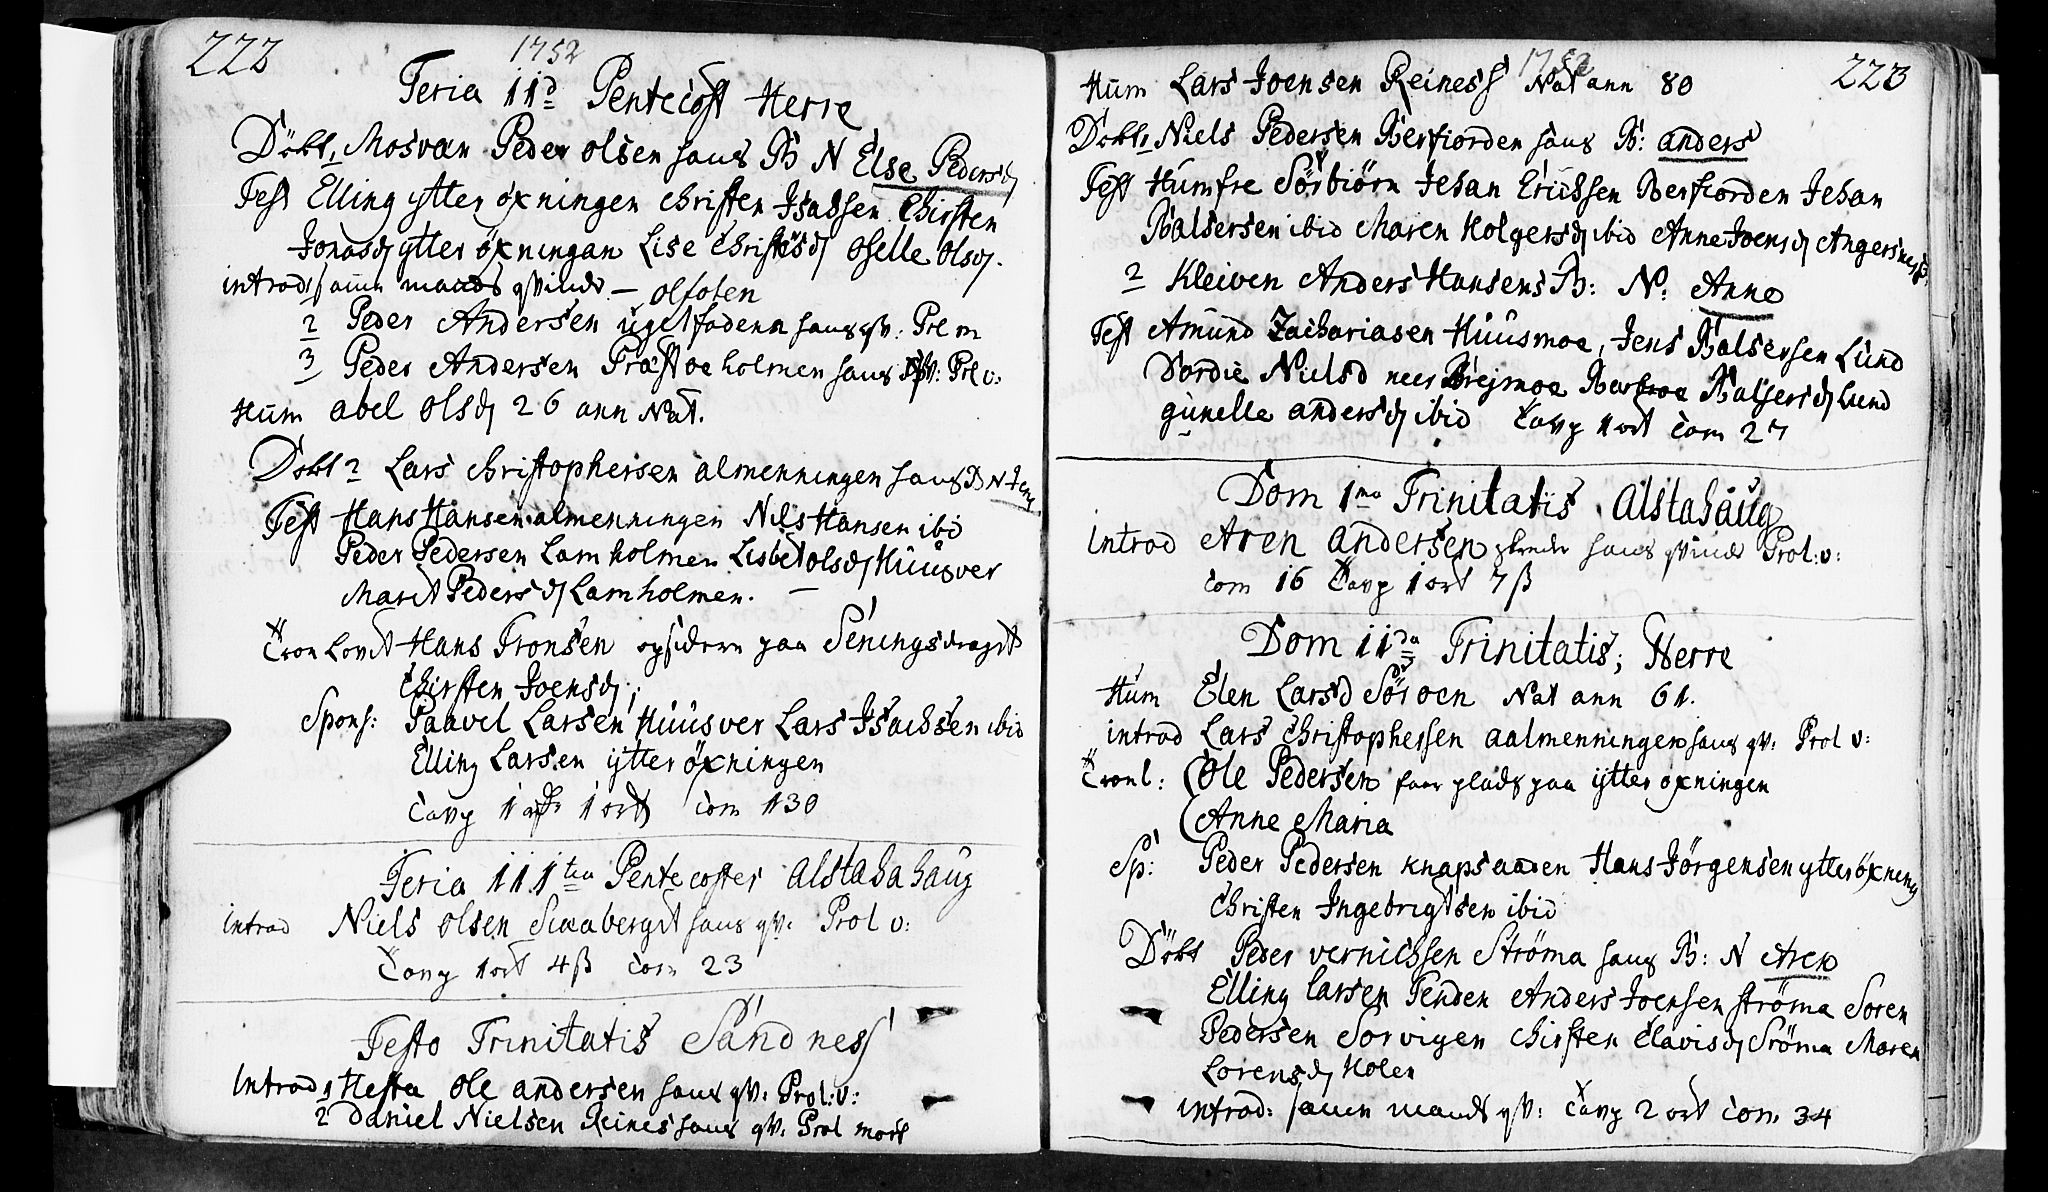 222
1752
Feria 11d Pentecost Herre
Döbt 1 Mosvær Peder olsen hans B N Else Pedersd
Test Elling ytter öxningen christen Isachsen Chirsten
Jonasd ytter öxningan Lise Christensd Oselle Olsd.
introd samme mands qvinde – olfoten
2 Peder Andersen hans qv: Prl m
3 Peder Andersen Træstoeholmen hans qv: Prl v:
Hum abel olsd 26 ann Nat.
Döbt 2 Lars christophersen almenningen hans B N Jens
Test Hans Hansen almenningen Nils Hansen ibid
Peder Pedersen Lamholmen Lisbet olsd Huusver
Maret Pedersd Lamholmen. –
Tron Lovet Hans Tronsen opsidern paa
Chirsten Joensd;
Spons: Paavel Larsen Huusver Lars Isachsen ibid
Elling Larsen ytter öxningen
Tavg 1 1 ort Com 130
Feria 111tia Pentecostes Alstahaug
introd Niels olsen hans qv. Prol v:
Tavg 1 ort 4 ß Com 23
Festo Trinitatis Sandness
Introd 1 Hestn Ole andersen hans qv: Prol: v:
2 Daniel Nielsen Reines hans qv: Prol mort
1752
223
Hum Lars Joensen Reiness Nat ann 80
Döbt 1 Niels Pedersen Berfiorden hans B: anders
Test Humfre Sörbiörn Jehan Erichsen Berfiorden Jehan
Balsersen ibid Maren Holgersd ibid Anne Joensd Angersness
2 Kleiven Anders Hansens B: N: Anne
Test Amund Zachariasen Huusmoe, Jens Balsersen Lund
Dordie Nielsd Brejmoe Balsersd Lund
gunelle andersd ibid Tavg 1 ort Com 27
Dom 1ma Trinitatis Alstahaug
introd Aren andersen hans qvinde Prol: v:
Com 16 Tavg 1 ort 7 ß
Dom 11da Trinitatis; Herre
Hum Elen Larsd Söroen Nat ann 61.
introd Lars Christophersen aalmenningen hans qv: Prol v:
Tronl: (Ole Pedersen faar plads paa ytter öxningen
(Anne Maria
Sp: Peder Pedersen knapsaaden Hans Jörgensen ytteröxning
Christen Ingebrigtsen ibid
Döbt Peder vernichsen Ströma hans B: N Aren
Elling Larsen Tenden Anders Joensen ströma Soren
Pedersen Sorvigen Chirsten Elavisd Ströma Maren
Lorensd Holen
introd: samme mands qv: Tavg 2 ort Com 34